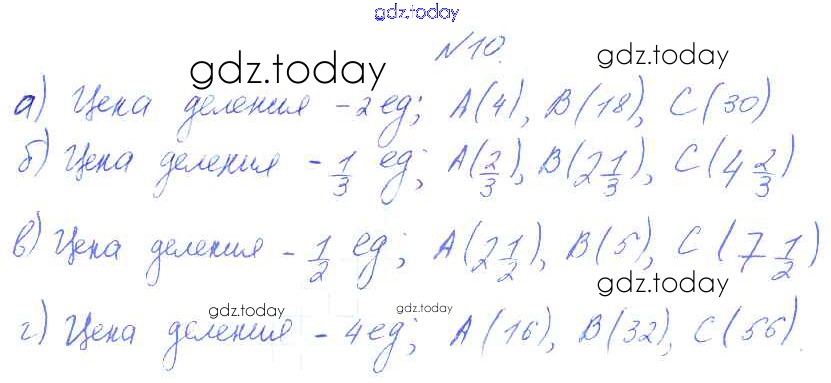 gdz.today
№10.
gdz.today
gdz.today
а) Цена деления - 2 ед; A(4), B(18), C(30)
б) Цена деления - 1/3 ед; A(2/3), B(2 1/3), C(4 2/3)
в) Цена деления - 1/2 ед; A(2 1/2), B(5), C(7 1/2)
gdz.today
gdz.today
gdz.today
г) Цена деления - 4 ед; A(16), B(32), C(56).